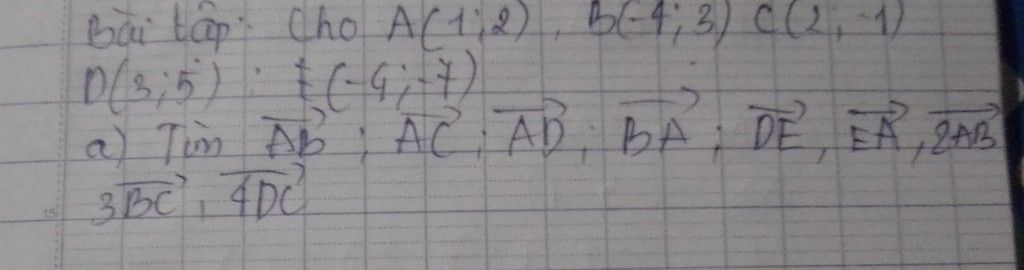 Bài tập: Cho A(1;2), B(-4;3) C(2;-1)
D(3;5); E(-4;-7)
a) Tìm AB; AC; AD; BA; DE, EA, 2AB
3BC, 4DC